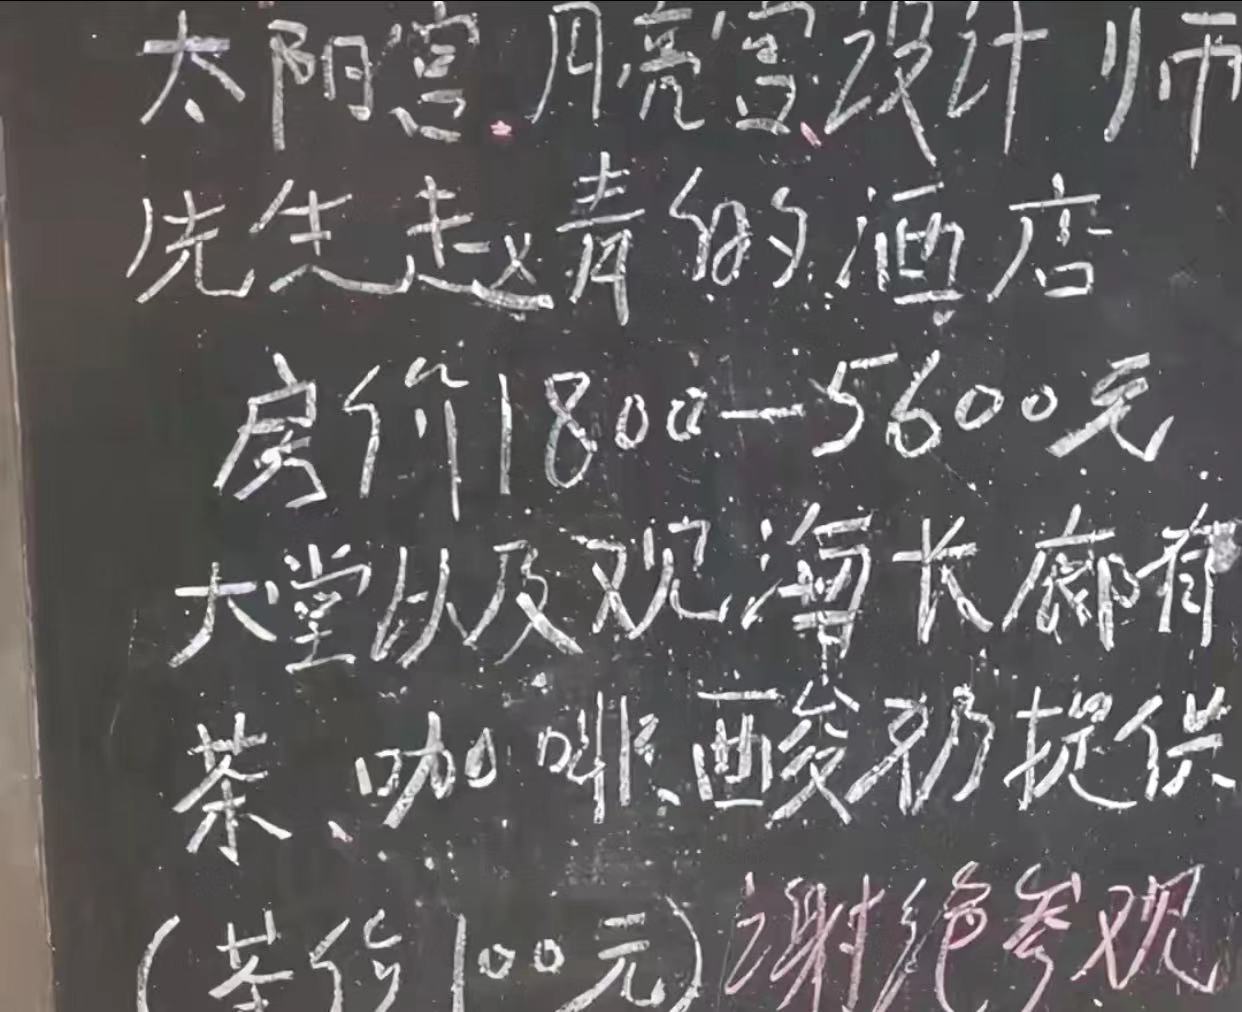 太阳宫、月亮宫、设计师
先生赵青的酒店
房价1800—5600元
大堂以及观海长廊有
茶、咖啡、酸奶提供
(茶价100元)谢绝参观